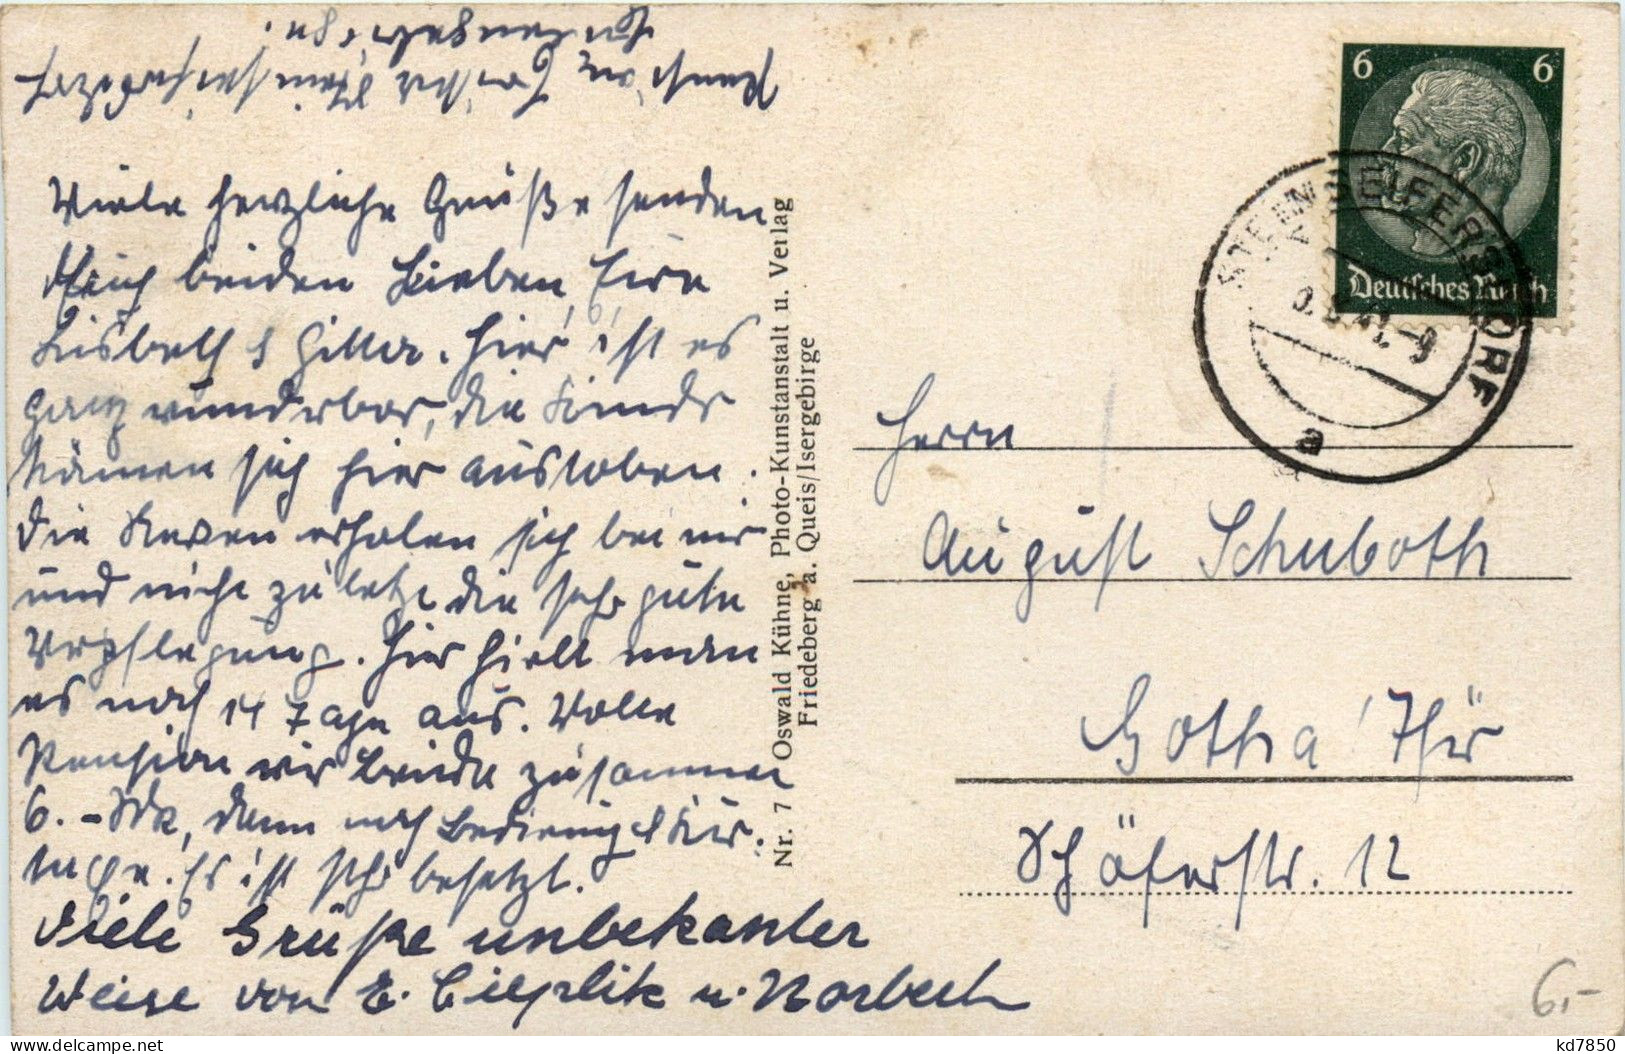 Viele herzliche Grüße senden
Euch beiden Lieben Eure
Lisbeth & Gitter. Hier ist es
ganz wunderbar, die Kinder
können sich hier austoben.
Die Nerven erholen sich bei mir
und nicht zuletzt die sehr gute
Verpflegung. Hier hielt man
es noch 14 Tage aus. Volle
Pension wir beide zusammen
6.- Mk, dann noch Bedienung & Kur-
taxe. Es ist sehr besetzt.
Viele Grüße unbekanter
Weise von E. u. Norbert
Nr. 7 Oswald Kühne, Photo-Kunstanstalt u. Verlag
Friedeberg a. Queis/Isergebirge
6 6
Deutsches Reich
STEINSEIFERSDORF
a
Herrn
August Schuboth
Gotha / Thür
Schäferstr. 12
6,-
kd7850